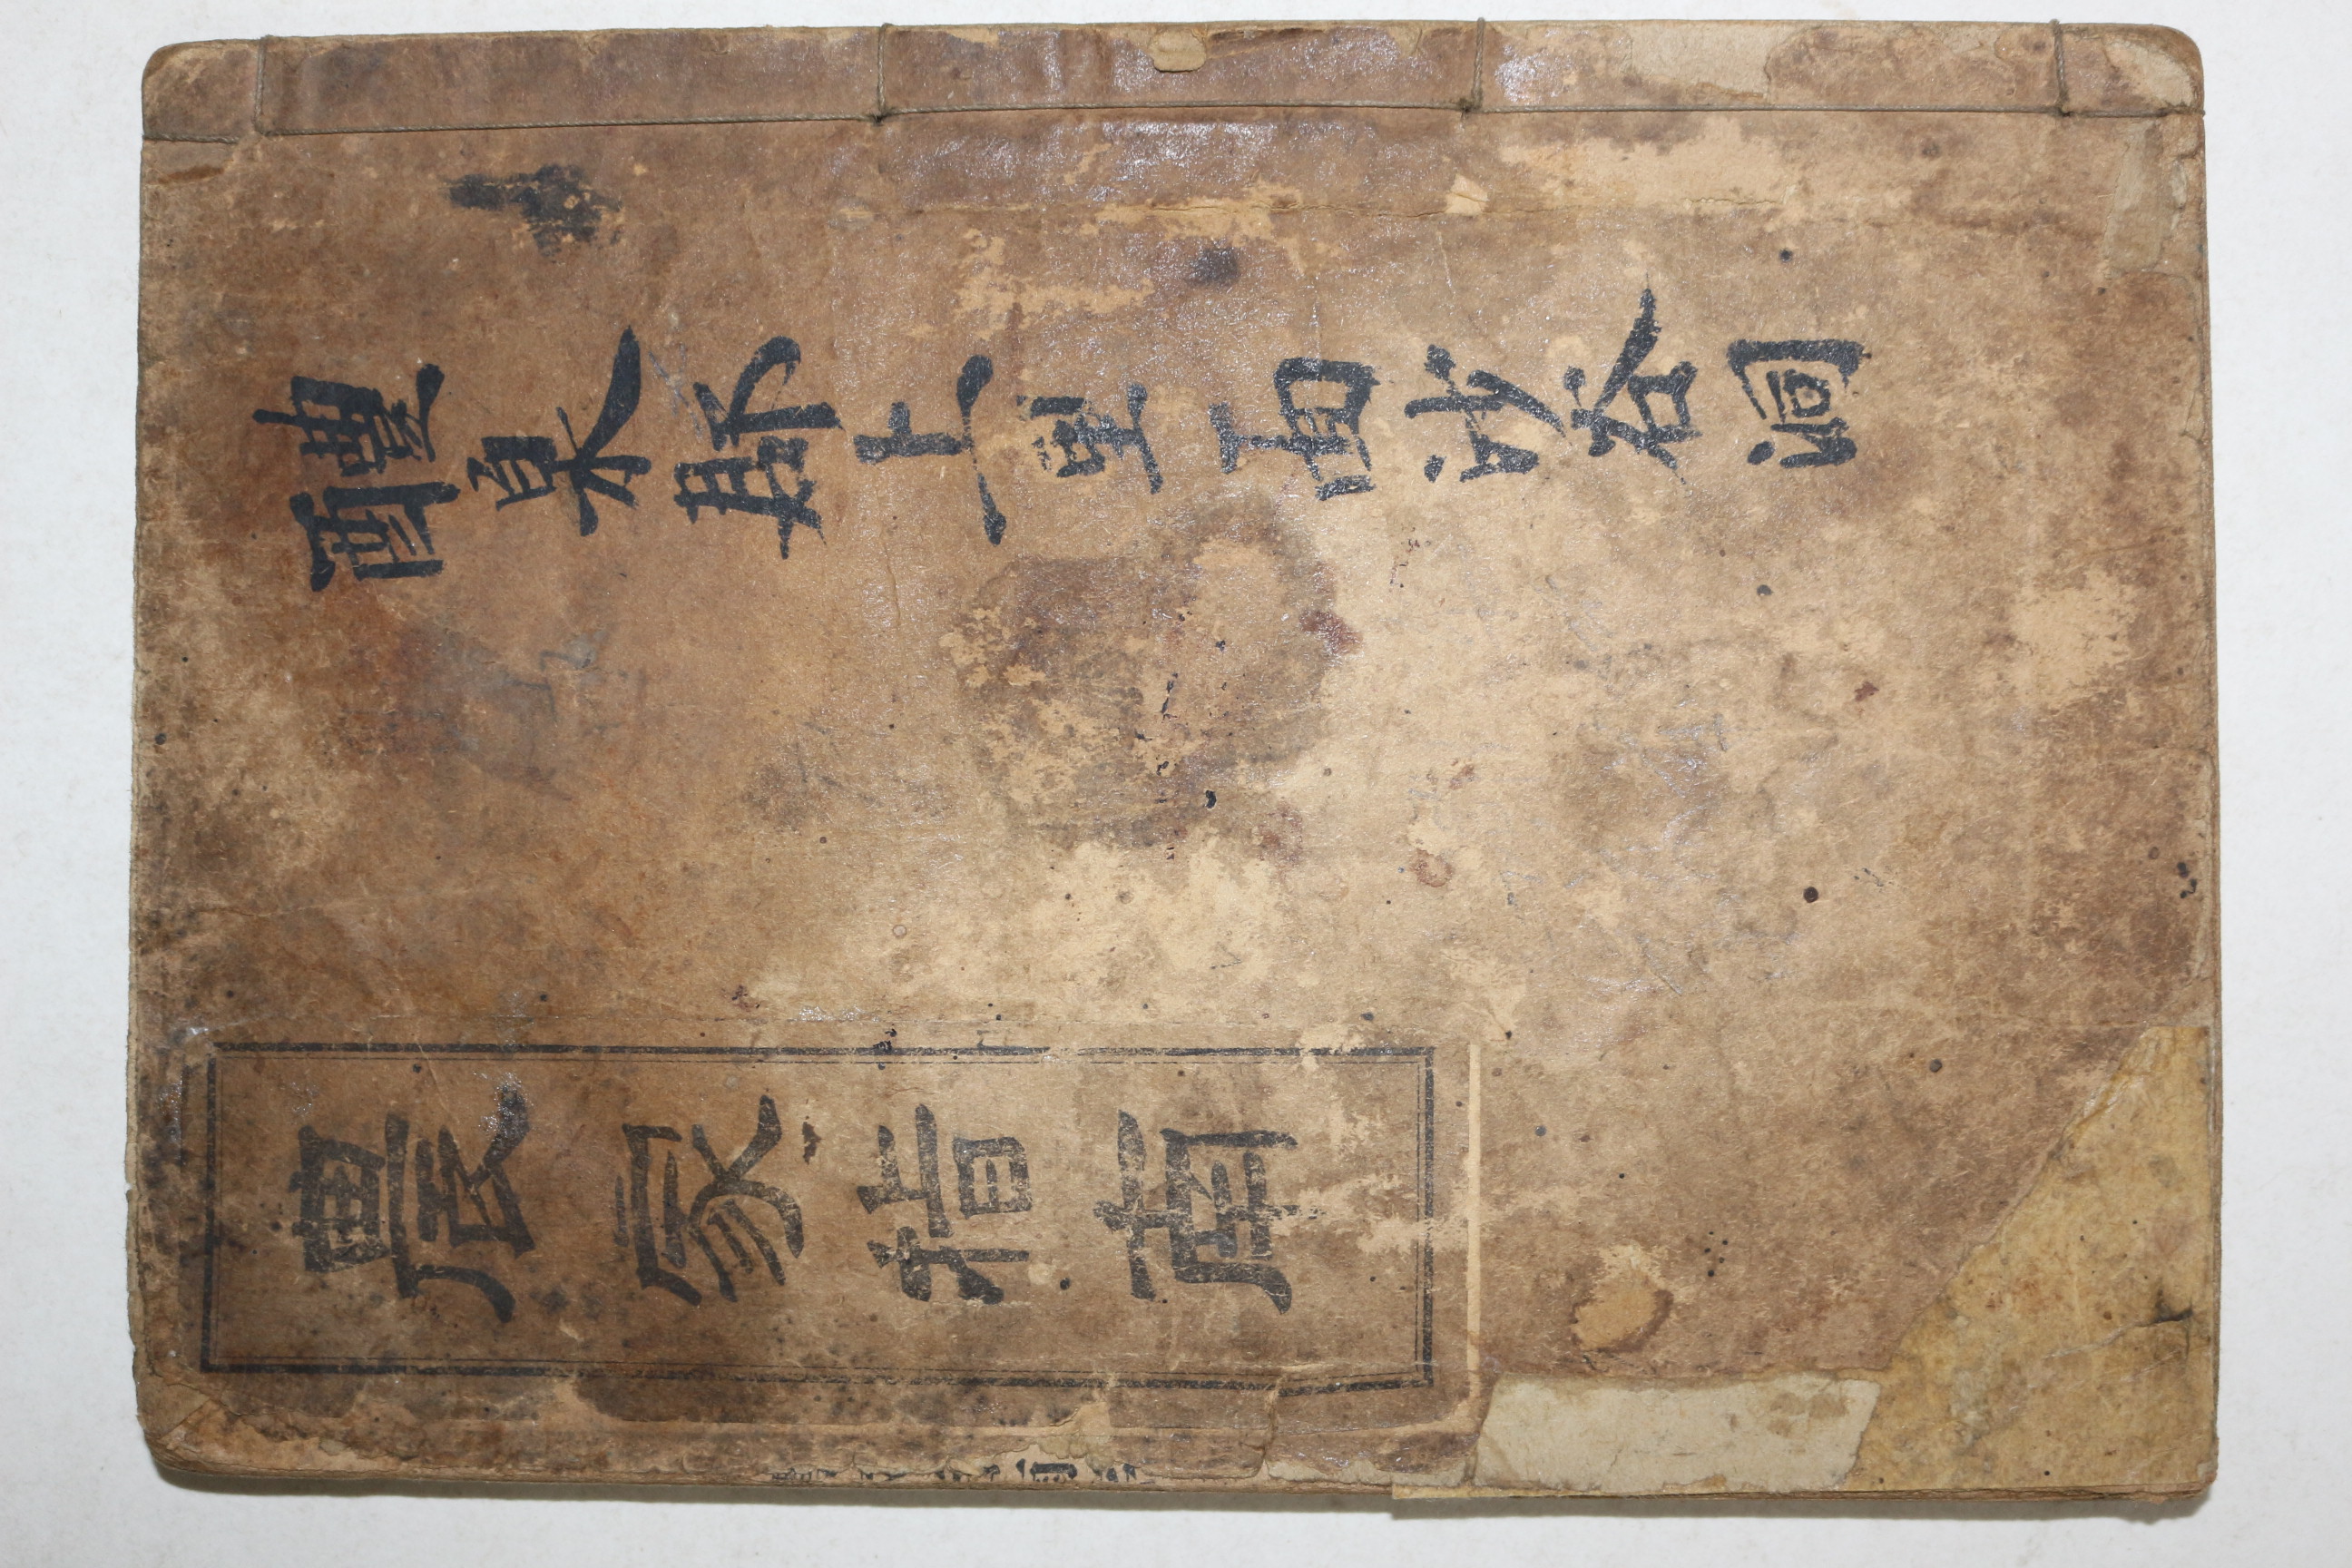 醴泉郡上里面沙谷洞
農家指南